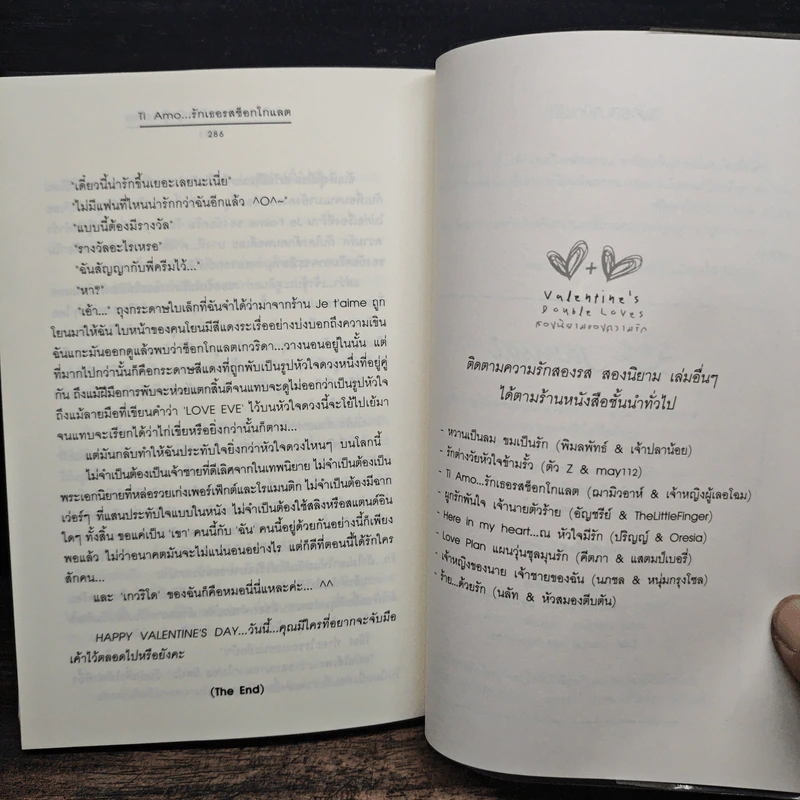 Ti Amo...รักเธอรสช็อกโกแลต
286
"เดี๋ยวนี้น่ารักขึ้นเยอะเลยนะเนี่ย"
"ไม่มีแฟนที่ไหนน่ารักกว่าฉันอีกแล้ว ^O^~"
"แบบนี้ต้องมีรางวัล"
"รางวัลอะไรเหรอ"
"ฉันสัญญากับพี่ครีมไว้..."
"หาร"
"เอ้า..." ถุงกระดาษใบเล็กที่ฉันจำได้ว่ามาจากร้าน Je t'aime ถูก
โยนมาให้ฉัน ใบหน้าของคนโยนมีสีแดงระเรื่ออย่างบ่งบอกถึงความเขิน
ฉันแกะมันออกดูแล้วพบว่าช็อกโกแลตเกวริดา...วางนอนอยู่ในนั้น แต่
ที่มากไปกว่านั้นก็คือกระดาษสีแดงที่ถูกพับเป็นรูปหัวใจดวงหนึ่งที่อยู่คู่
กัน ถึงแม้ฝีมือการพับจะห่วยแตกสิ้นดีจนแทบจะดูไม่ออกว่าเป็นรูปหัวใจ
ถึงแม้ลายมือที่เขียนคำว่า 'LOVE EVE' ไว้บนหัวใจดวงนี้จะโย้ไปเย้มา
จนแทบจะเรียกได้ว่าไก่เขี่ยหรือยิ่งกว่านั้นก็ตาม...
แต่มันกลับทำให้ฉันประทับใจยิ่งกว่าหัวใจดวงไหนๆ บนโลกนี้
ไม่จำเป็นต้องเป็นเจ้าชายที่ดีเลิศจากในเทพนิยาย ไม่จำเป็นต้องเป็น
พระเอกนิยายที่หล่อรวยเก่งเพอร์เฟ็กต์และโรแมนติก ไม่จำเป็นต้องมีฉาก
เว่อร์ๆ ที่แสนประทับใจแบบในหนัง ไม่จำเป็นต้องใช้สลิงหรือสแตนด์อิน
ใดๆ ทั้งสิ้น ขอแค่เป็น 'เขา' คนนี้กับ 'ฉัน' คนนี้อยู่ด้วยกันอย่างนี้ก็เพียง
พอแล้ว ไม่ว่าอนาคตมันจะไม่แน่นอนอย่างไร แต่ก็ดีที่ตอนนี้ได้รักใคร
สักคน...
และ 'เกวริโด' ของฉันก็คือหมอนี่นี่แหละค่ะ... ^^
HAPPY VALENTINE'S DAY...วันนี้...คุณมีใครที่อยากจะจับมือ
เค้าไว้ตลอดไปหรือยังคะ
(The End)
+
Valentine's
Double Loves
สองนิยามของความรัก
ติดตามความรักสองรส สองนิยาม เล่มอื่นๆ
ได้ตามร้านหนังสือชั้นนำทั่วไป
- หวานเป็นลม ขมเป็นรัก (พิมลพัทธ์ & เจ้าปลาน้อย)
- รักต่างวัยหัวใจข้ามรั้ว (ตัว Z & may112)
- Ti Amo...รักเธอรสช็อกโกแลต (ฌามิวอาห์ & เจ้าหญิงผู้เลอโฉม)
- ผูกรักพันใจ เจ้านายตัวร้าย (อัญชรีย์ & TheLittleFinger)
- Here in my heart...ณ หัวใจมีรัก (ปริญญ์ & Oresia)
- Love Plan แผนวุ่นชุลมุนรัก (คีตภา & แสตมป์เบอรี่)
- เจ้าหญิงของนาย เจ้าชายของฉัน (นภชล & หนุ่มกรุงโซล)
- ร้าย...ด้วยรัก (นลัท & หัวสมองตีบตัน)